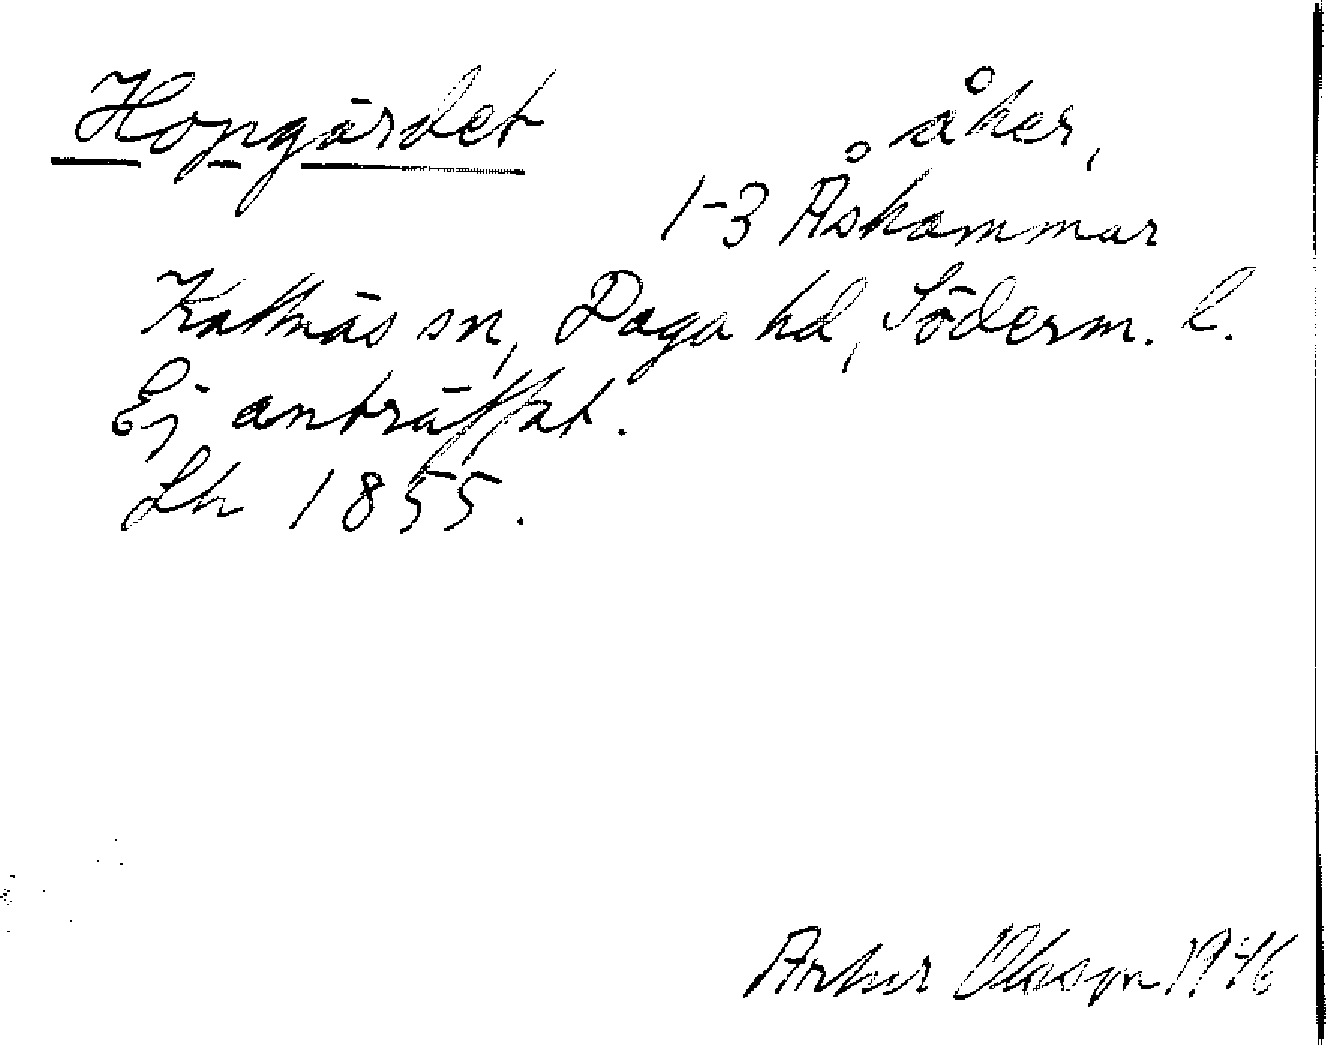 Hopgärdet åker,
1-3 Åskammar
Kattnäs sn, Daga hd, Söderm. l.
Ej anträffat.
Lh 1855.
Arthur Olsson 1946